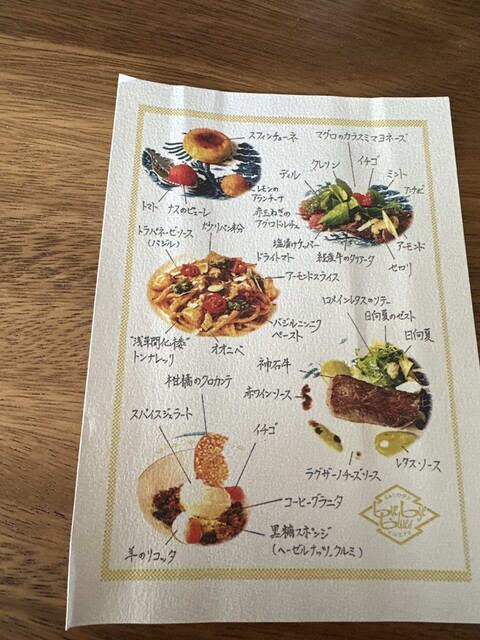 スフィンチョーネ
トマト
ナスのピューレ
レモンの
アランチーナ
マグロのカラスミマヨネーズ
イチゴ
クレソン
ミント
ディル
アンチョビ
赤玉ねぎの
アグロドルチェ
塩漬けケッパー
アーモンド
セロリ
経産牛のタリアータ
トラパネーゼソース
(バジル)
ドライトマト
アーモンドスライス
バジルニンニク
ペースト
オオニベ
"浅草開化楼"
トンナレッリ
ロメインレタスのソテー
日向夏のゼスト
日向夏
神石牛
赤ワインソース
レタスソース
ラグザーノチーズソース
柑橘のクロカンテ
スパイスジェラート
イチゴ
コーヒーグラニタ
黒糖スポンジ
(ヘーゼルナッツ、クルミ)
羊のリコッタ
bye bye
blues
TOKYO